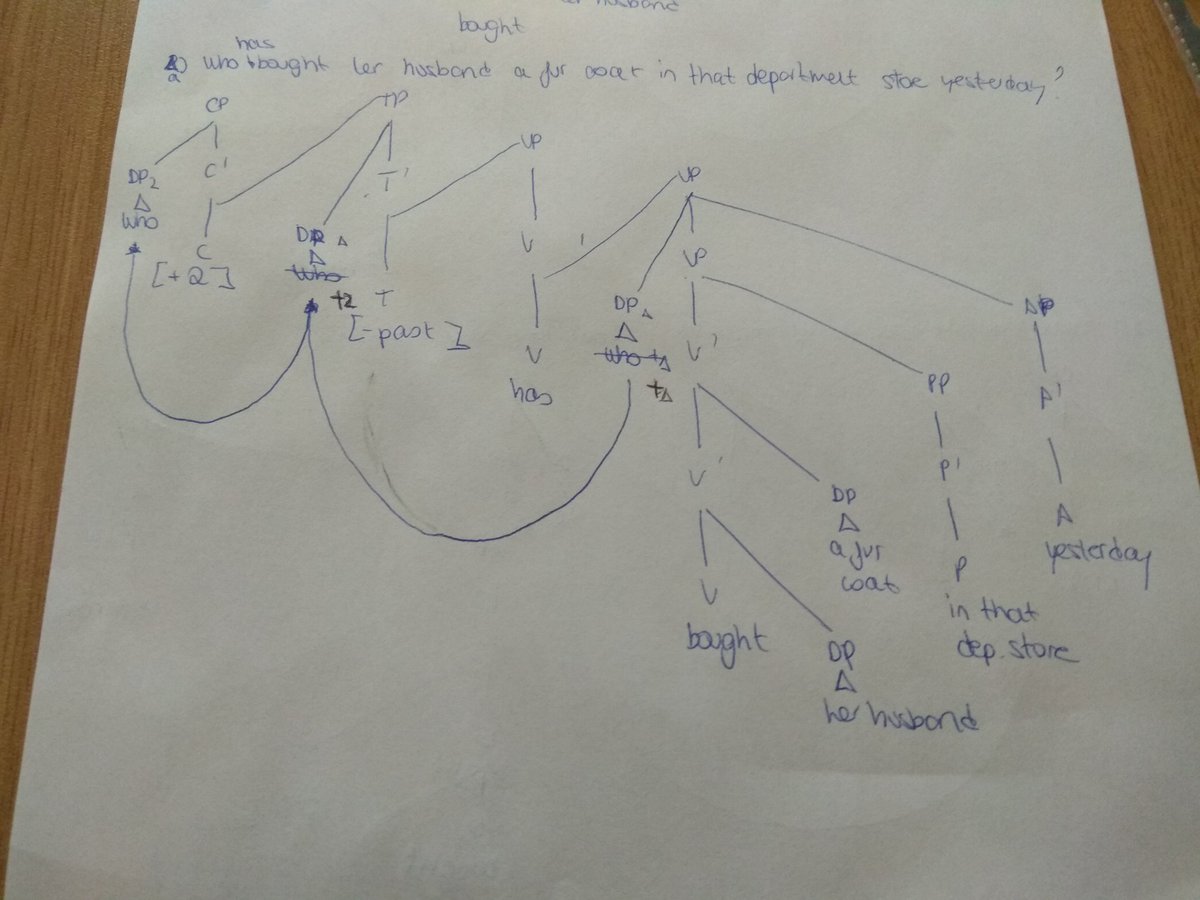 husband
bought
has
a) who bought her husband a fur coat in that department store yesterday?
CP TP
VP
DP2 C' T' VP
who
C DP V' VP
[+Q] who AP
t2 T DP
[-past] V who V' PP A'
has t
V' DP P' A
a fur yesterday
coat
V P
in that
bought DP dep. store
her husband